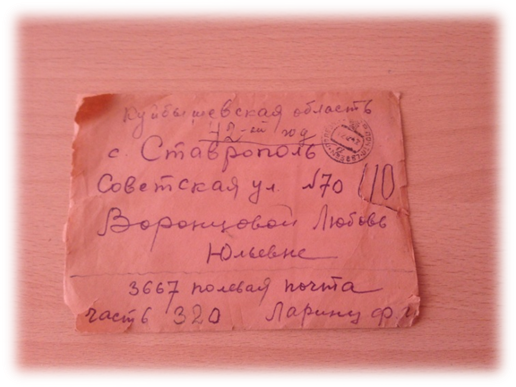 Куйбышевская область
42-ой год
с. Ставрополь
Советская ул. №70
110
Воронцовой Любовь
Юльевне
3667 полевая почта
часть 320 Ларину Ф.